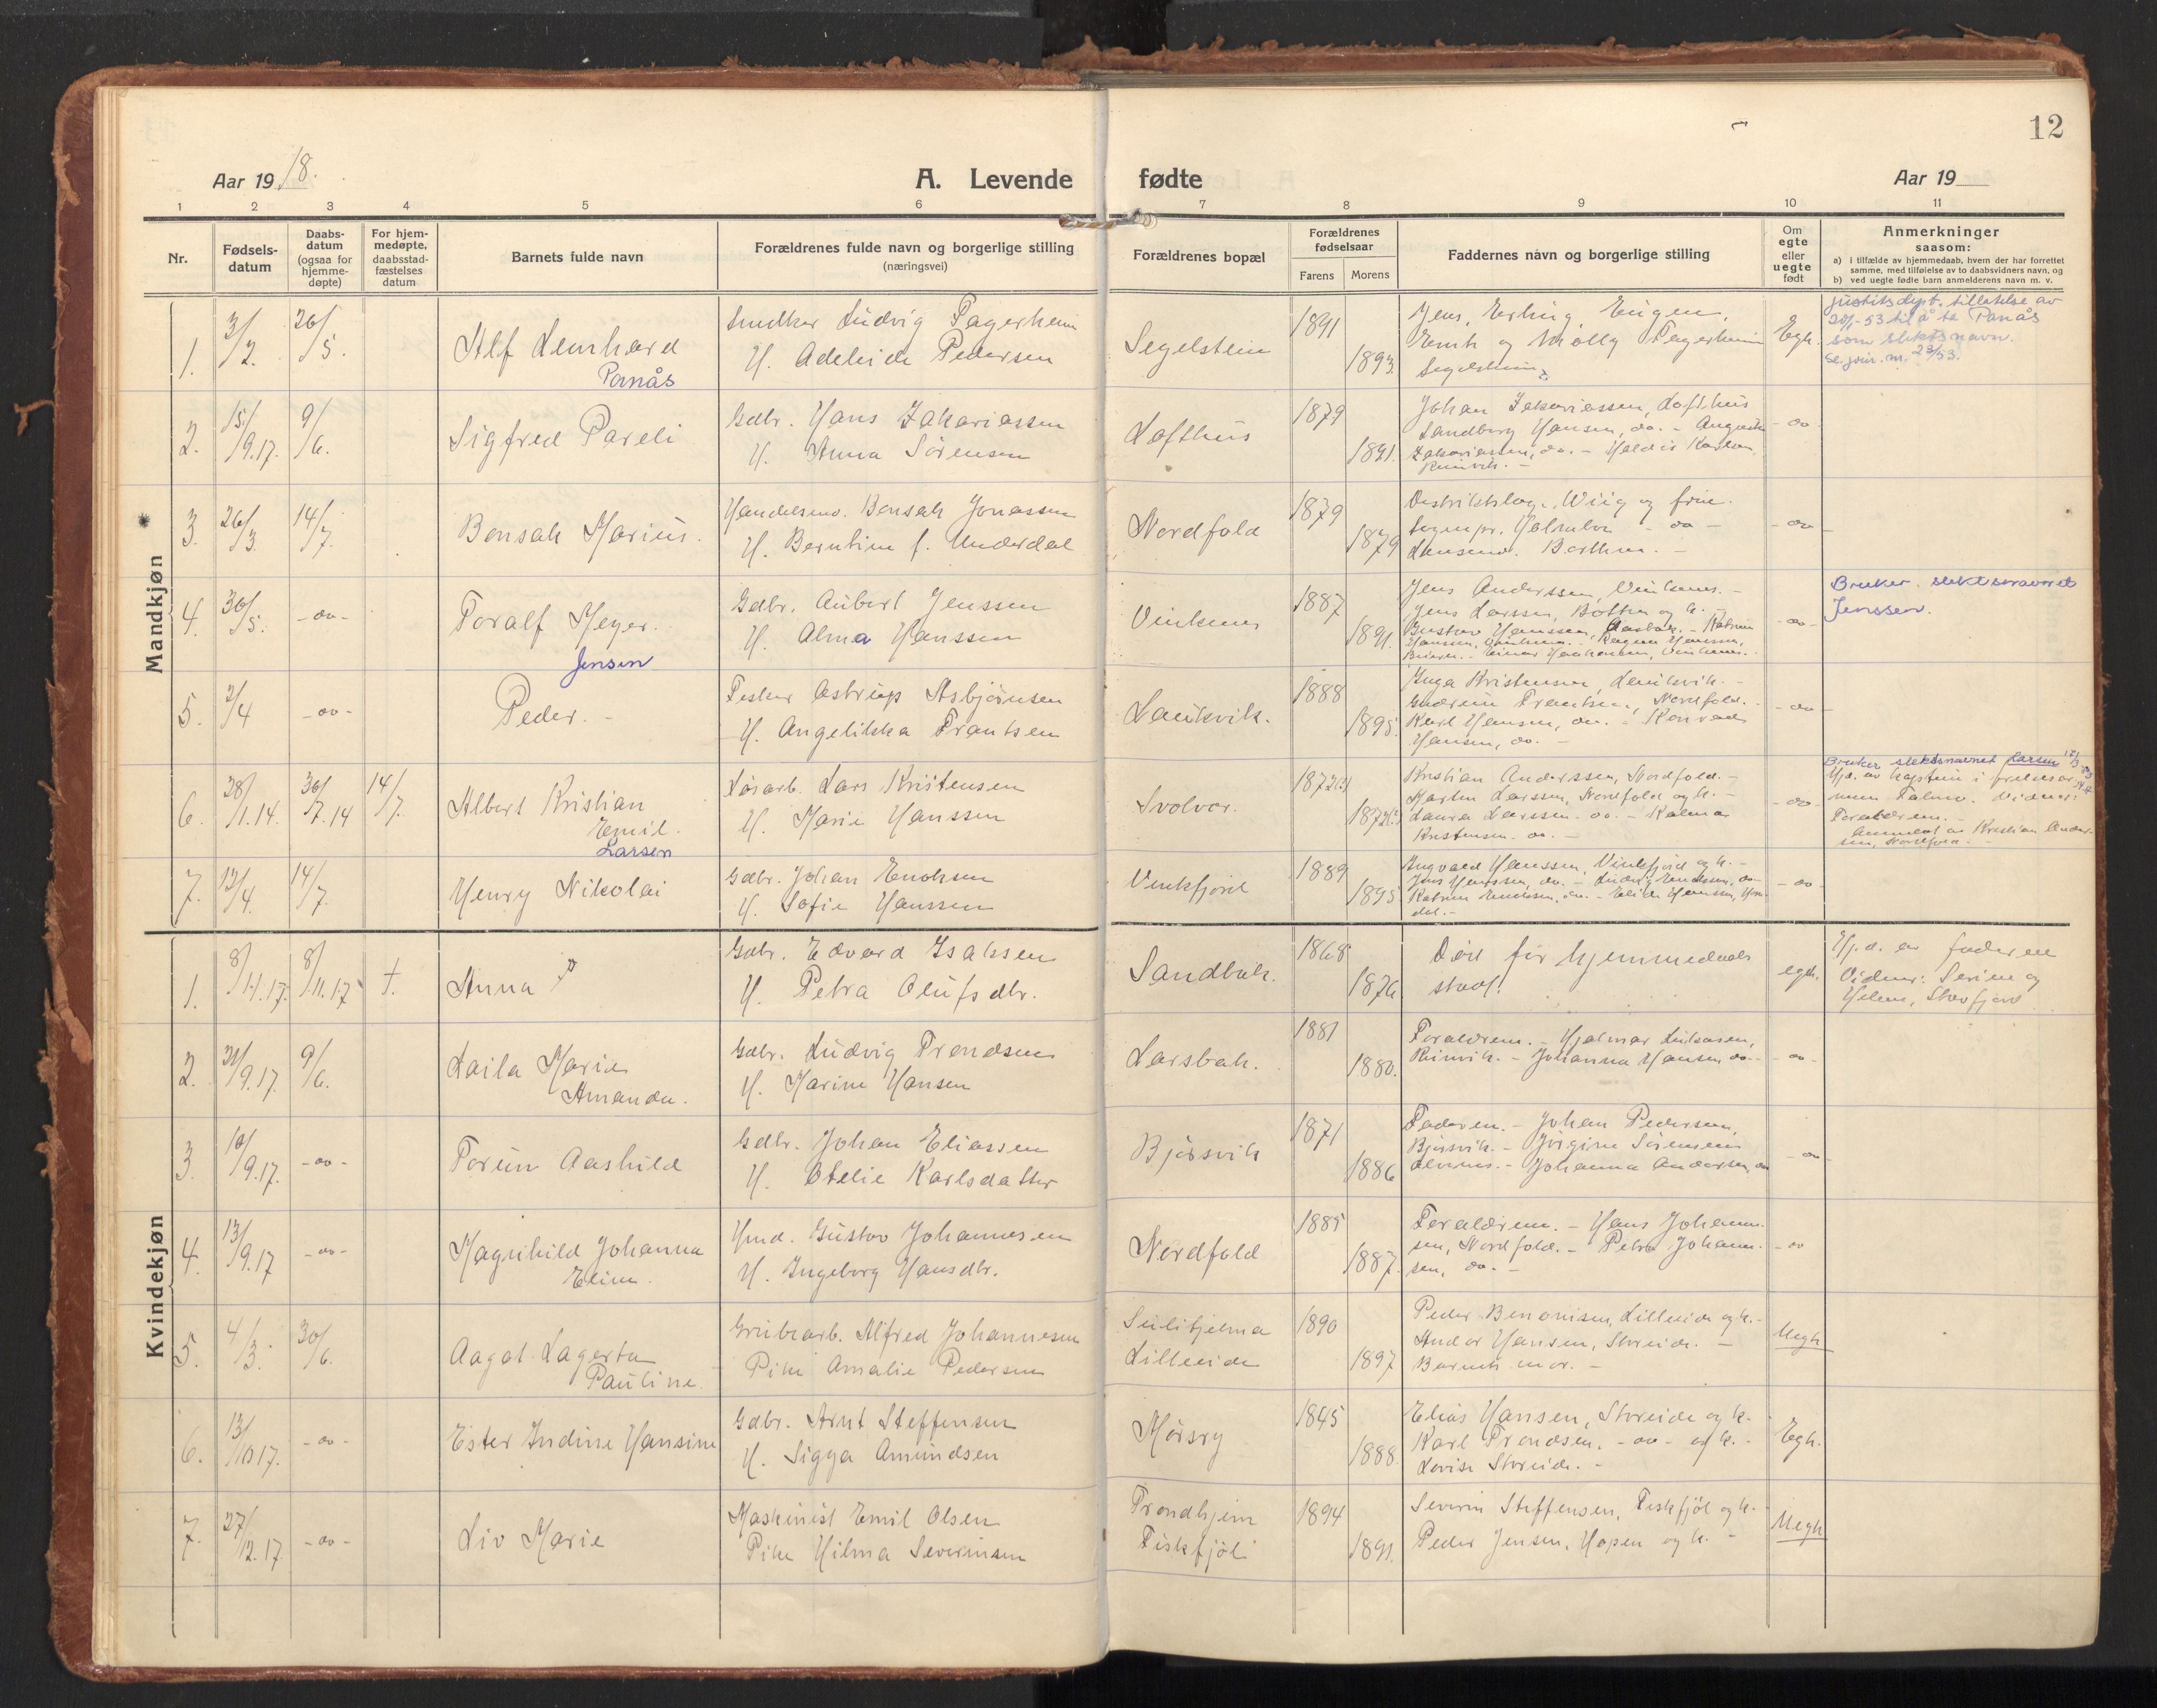 12
Aar 1918.
A. Levende fødte
Aar 19
1 2 3 4 5 6 7 8 9 10 11
Nr.
Fødselsdatum
Daabsdatum (ogsaa for hjemmedøpte)
For hjemmedøpte, daabsstadfæstelses datum
Barnets fulde navn
Forældrenes fulde navn og borgerlige stilling (næringsvei)
Forældrenes bopæl
Forældrenes fødselsaar
Farens Morens
Faddernes navn og borgerlige stilling
Om egte eller uegte født
Anmerkninger saasom:
a) i tilfælde av hjemmedaab, hvem der har forrettet samme, med tilføielse av to daabsvidners navn, og
b) ved uegte fødte barn anmelderens navn m. v.
Mandkjøn
1. 3/2. 26/5. Alf Lenhard
Parnås
Ludvig Fagerheim
H. Adeleide Pedersen
1891
1893.
Jens, Erling, Eugen,
og Molly Fagerheim
Egte.
justitsdept. tillatelse av
til å ta Parnås
som slektsnavn.
Se jour. nr. 23/53.
2. 15/9.17. 9/6. Sigfred Pareli
Gdbr. Hans Zakariassen
H. Anna Sørensen
Lofthus
1879
1891.
Johan Zakariassen, Lofthus
Sandberg Hansen, do. -
Zakariassen, do. - Karlsen
- do -
3. 26/3. 14/7. Bensak Marius.
Handelsmd. Bensak Jonassen
H. Berntine f. Underdal
Nordfold
1879
1879
Distriktslæge Wiig og frue.
- do -
- do -
4. 30/5. - do - Toralf Meyer.
Jensen
Gdbr. Aubert Jenssen
H. Alma Hanssen
Vinkenes
1887
1891.
Jens Anderssen, Vinkenes. -
Jens Larssen, Botten og h. -
Gustav Hanssen,
- do -
Bruker slektsnavnet
Jenssen.
5. 2/4 - do - Peder. -
Fisker Astrup Asbjørnsen
H. Angelikka Frantsen
Laukvik.
1888
1895.
Inga Kristensen, Laukvik. -
Frantsen, Nordfold. -
Karl Hansen, do. - Konrad
Hansen, do. -
- do -
6. 28/1.14. 30/7.14 14/7. Albert Kristian
Emil.
Larsen
Lars Kristensen
H. Marie Hanssen
Svolvær.
1872(?)
1872(?)
Kristian Anderssen, Nordfold. -
Martin Larssen, Nordfold og h. -
Laura Larssen. do. - Kalma
Kristensen. do. -
- do -
Bruker slektsnavnet Larsen
Hjd. av kaptein i frelsesar-
Forældrene. -
Anmeldt av Kristian Ander-
sen, Nordfold. -
7. 12/4. 14/7. Henry Nikolai
Gdbr. Johan Enoksen
H. Sofie Hanssen
Vinkfjord
1889
1895
Ingvald Hanssen, Vinkfjord og h. -
Jens Hanssen, do. - Ludvig Enoksen, do -
- do -
Kvindekjøn
1. 8/11.17. 8/11.17 †. Anna
Gdbr. Edvard Isaksen
H. Petra Olufsdtr.
Sandbak.
1868
1876
Død før hjemmedaab
stadf.
egte.
Hj.d. av faderen
Vidner: Serine og
Helene, Storfjord
2. 31/9.17. 9/6. Laila Marie
Amanda.
Gdbr. Ludvig Trondsen
H. Marine Hansen
Larsbak.
1881
1880.
Forældrene. - Hjalmar
Rinvik. - Johanna Hansen do -
- do -
3. 10/9.17. - do - Torun Aashild
Gdbr. Johan Eliassen
H. Otelie Karlsdatter
Bjørsvik
1871
1886
Faderen. - Johan Pedersen,
Bjørsvik. - Jørgine Sørensen
Johanna Andersen do
- do -
4. 13/9.17 - do - Magnhild Johanna
Eline.
Hmd. Gustav Johannesen
H. Ingeborg Hansdtr.
Nordfold
1885
1887.
Forældrene. - Hans Johanne-
sen, Nordfold. - Petra Johanne-
sen, do. -
- do
5. 4/3. 30/6. Aagot Lagerta
Pauline
Grubearb. Alfred Johannesen
Pike Amalie Pedersen
Sulitjelma
Lilleeide
1890
1897
Peder Benonisen, Lilleeide og h. -
Andor Hansen, Storeide. -
Barnets mor. -
Uegte
6. 13/10 17. - do - Ester Indine Hansine
Gdbr. Arnt Steffensen
H. Sigga Amundsen
Mørsry
1845
1888.
Elias Hansen, Storeide og h. -
Karl Trondsen, - do - og h. -
Lovise Storeide. -
Egte.
7. 27/12.17 - do - Liv Marie
Maskinist Emil Olsen
Pike Hilma Severinsen
Trondhjem
Fiskfjøl
1894
1891.
Severin Steffensen, Fiskfjøl og h. -
Peder Jensen, Hopen og h. -
Uegte